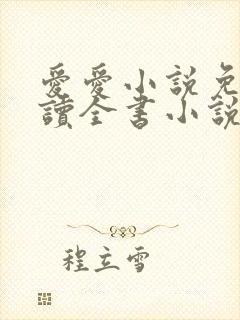 愛愛小說免
讀全書小說
程立雪